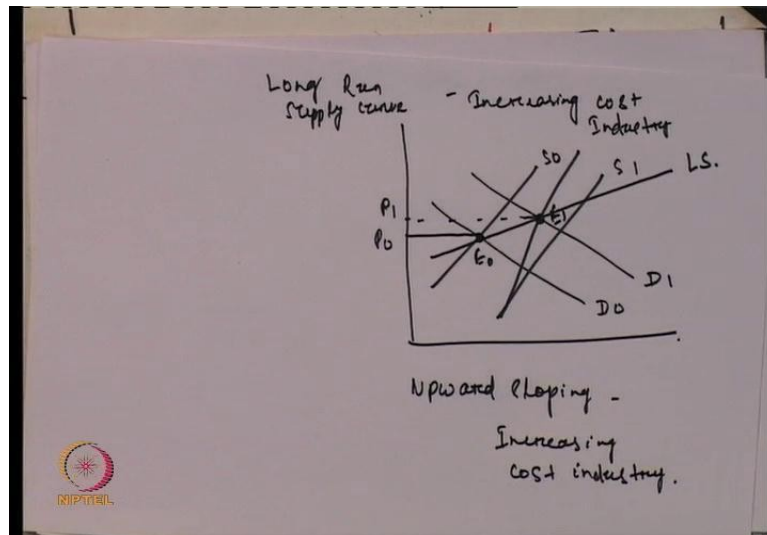 Long Run
Supply curve - Increasing cost
Industry
S0
S1
LS.
P1
E1
P0
E0
D1
D0
Upward Sloping -
Increasing
cost industry.
NPTEL